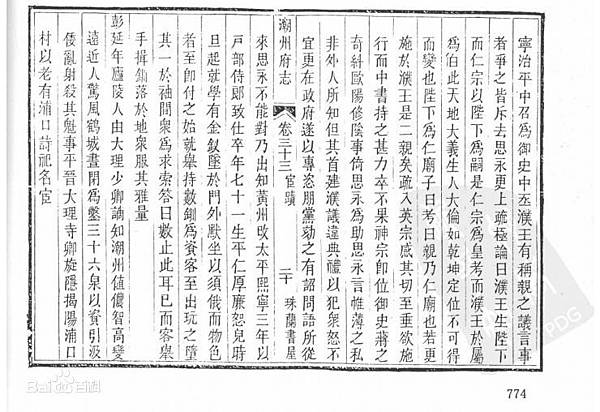 寧治平中召爲御史中丞濮王有稱親之議言事
者爭之皆斥去思永更上疏極論曰濮王生陛下
而仁宗以陛下爲嗣是仁宗爲皇考而濮王於屬
爲伯此天地大義生人大倫如乾坤定位不可得
而變也陛下爲仁廟子曰考曰親乃仁廟也若更
施於濮王是二親矣疏入英宗感其切至垂欲施
行而中書持之甚力卒不果神宗即位御史蔣之
奇糾歐陽修陰事倚思永爲助思永言帷薄之私
非外人所知但其首建濮議違典禮以犯衆怒不
宜更在政府遂以專恣朋黨劾之有詔問語所從
潮州府志
卷三十三 宦蹟
二十
珠蘭書屋
來思永不能對乃出知黃州改太平熙寧三年以
戸部侍郎致仕卒年七十一生平仁厚廉恕兒時
旦起就學有金釵墜於門外默坐以須俄而物色
者至即付之始就舉持數釧爲資客至出玩之墮
其一於袖間衆爲求索答曰數止此耳已而客舉
手揖釧落於地衆服其雅量
彭延年廬陵人由大理少卿謫知潮州値儂智高變
遠近人驚風鶴城晝閉爲鑿三十六泉以資引汲
倭亂射殺其魁事平晉大理寺卿旋隱揭陽浦口
村以老有浦口詩祀名宦
Bai百科
PDG
774